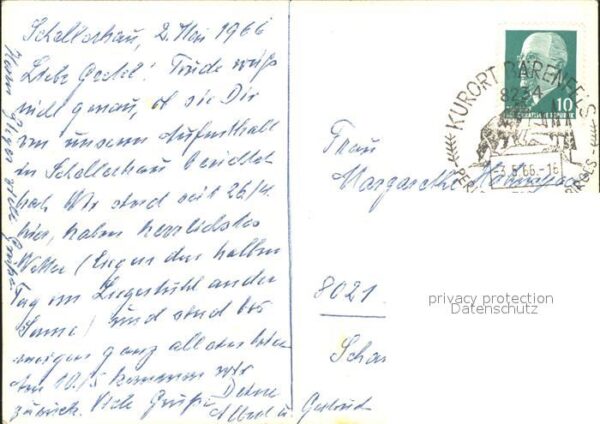 Schellerhau, 2. Mai 1966
Liebe Gretel! Trude weiß
nicht genau, ob sie Dir
von unserem Aufenthalt
in Schellerhau berichtet
hat. Wir sind seit 26/4.
hier, haben herrlichstes
Wetter (liegen den halben
Tag im Liegestuhl an der
Sonne) und sind bis
morgen ganz allein hier
Am 10./5 kommen wir
zurück. Viele Grüße Deine
Albert u. Gertrud
Grüße
KURORT BÄRENFELS
8234
-3.5.66.-16
10
DEUTSCHE DEMOKRATISCHE REPUBLIK
Frau
Margarethe
8021
privacy protection
Datenschutz